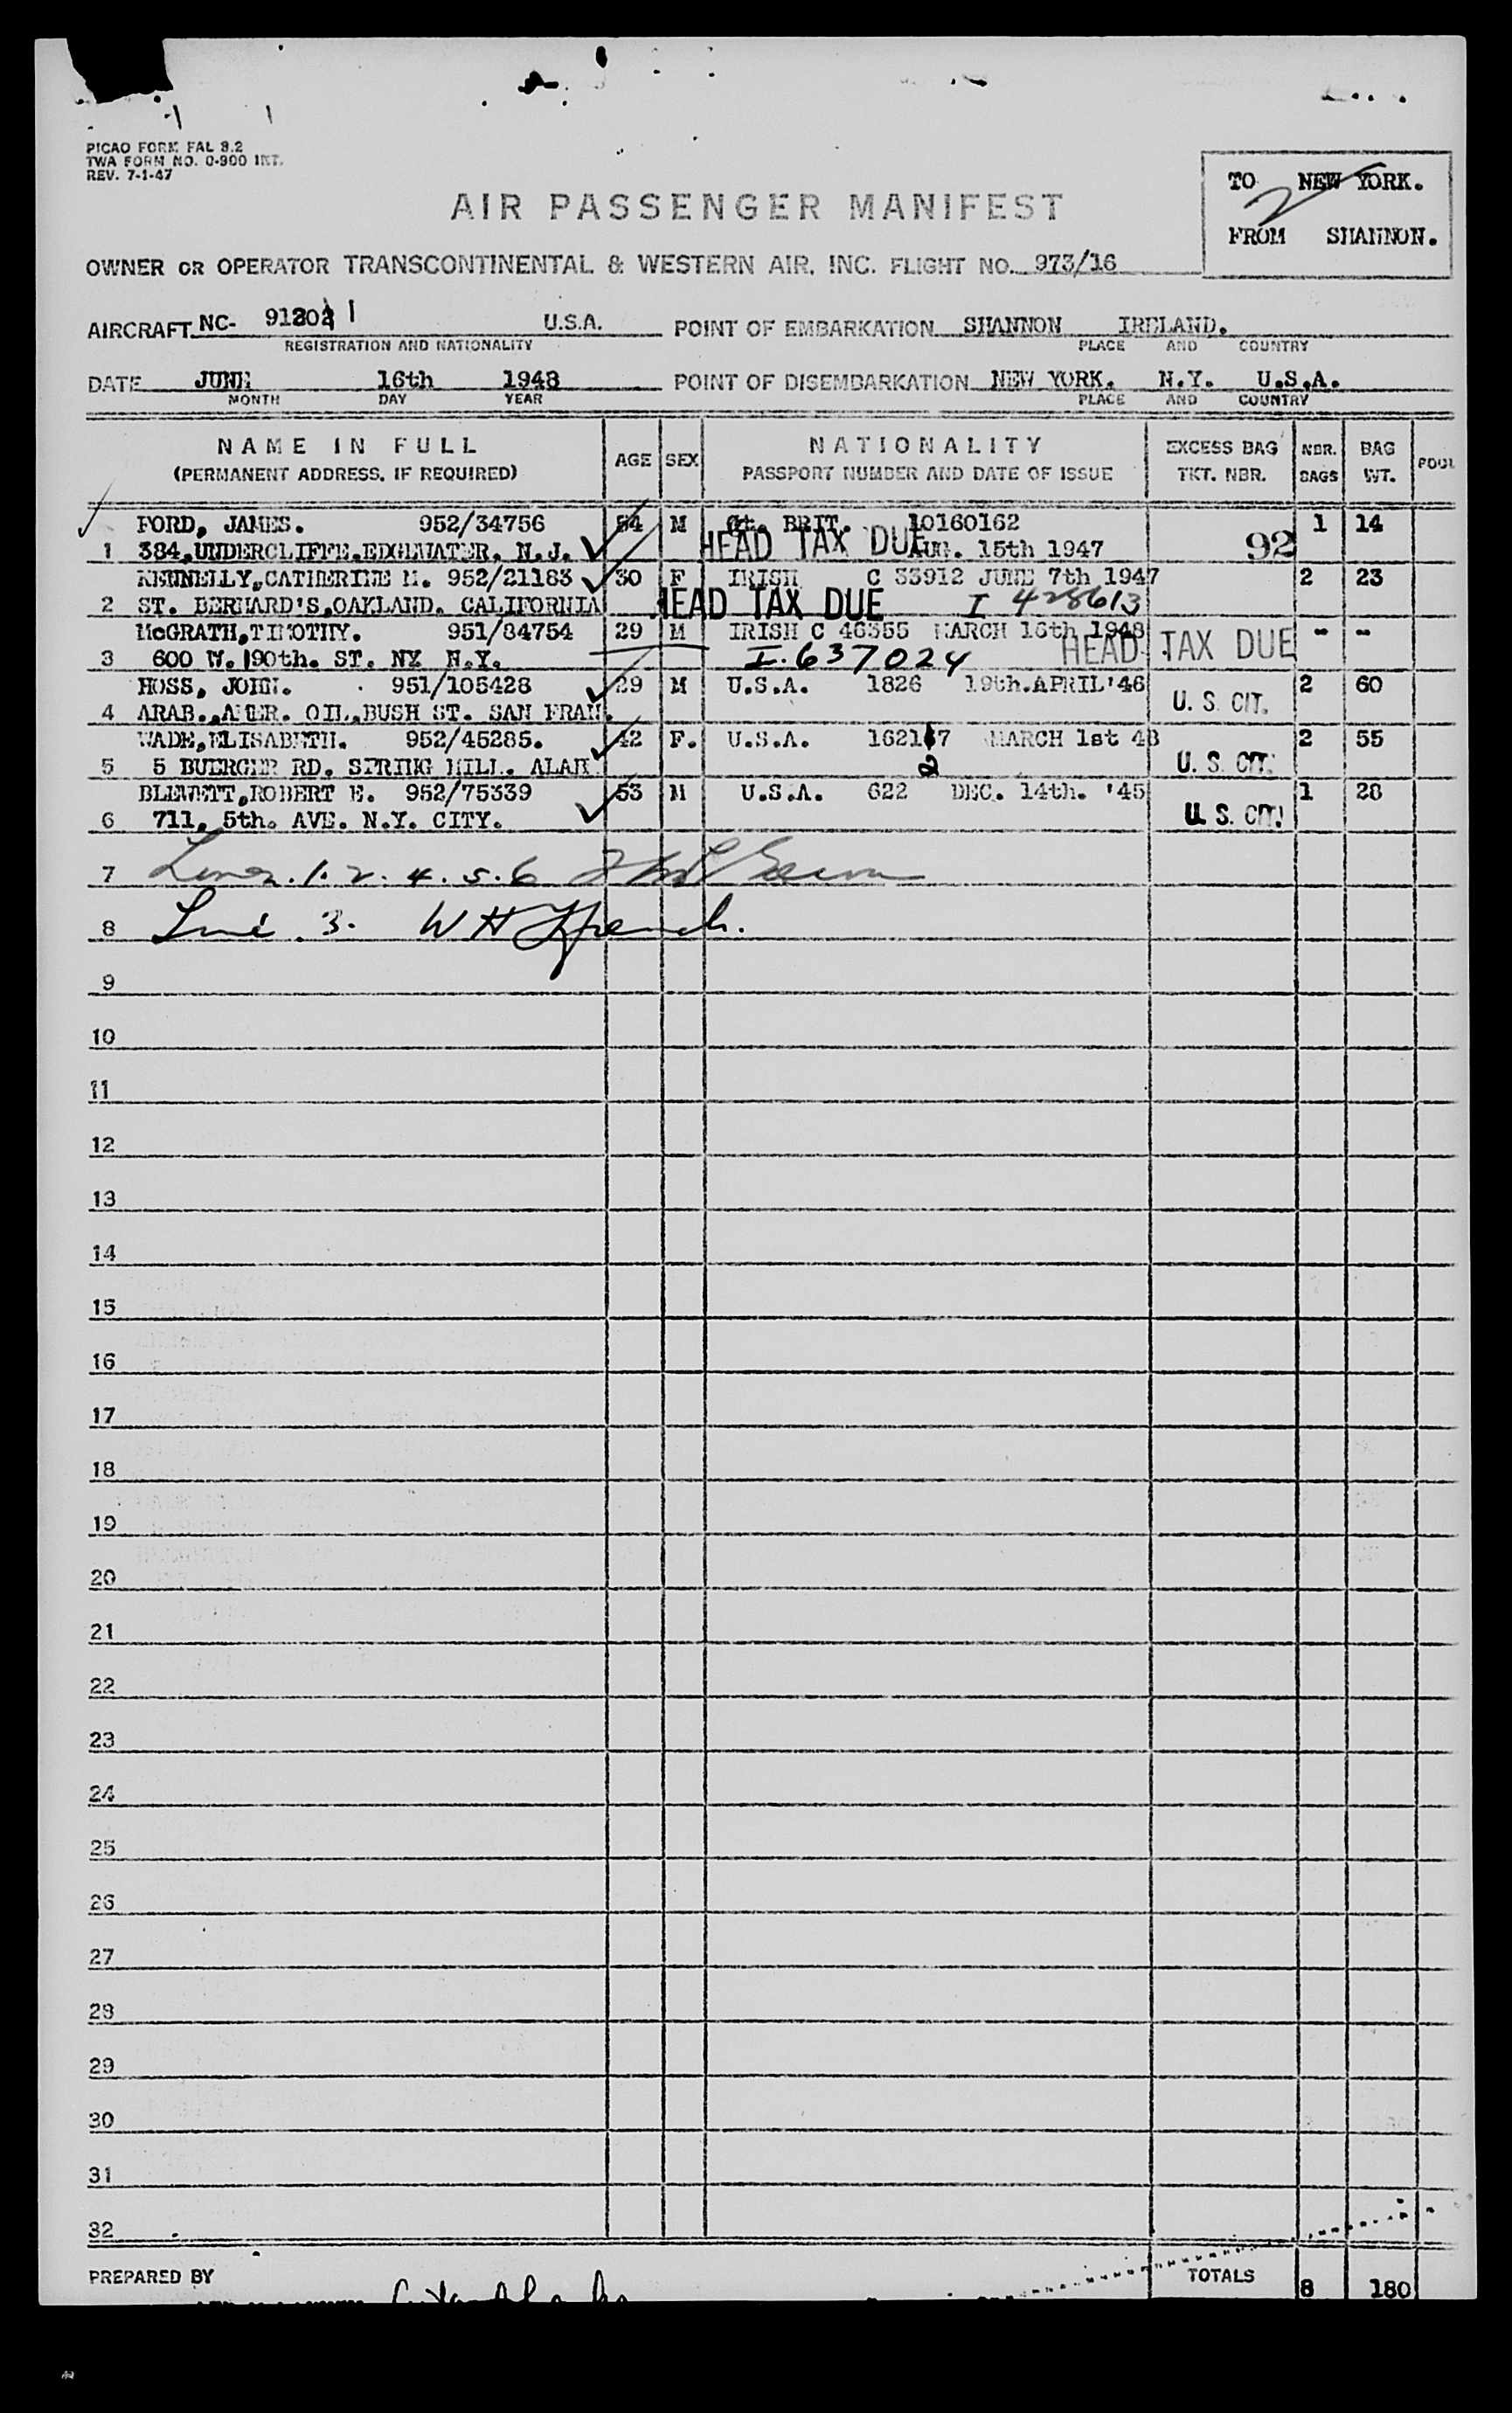 PICAO FORM FAL 8.2
TWA FORM NO. 0-900 INT.
REV. 7-1-47
TO NEW YORK.
2
FROM SHANNON.
AIR PASSENGER MANIFEST
OWNER OR OPERATOR TRANSCONTINENTAL & WESTERN AIR, INC. FLIGHT NO. 973/16
AIRCRAFT NC- 91202 1 U.S.A. POINT OF EMBARKATION SHANNON IRELAND.
REGISTRATION AND NATIONALITY PLACE AND COUNTRY
DATE JUNE 16th 1948 POINT OF DISEMBARKATION NEW YORK. N.Y. U.S.A.
MONTH DAY YEAR PLACE AND COUNTRY
NAME IN FULL AGE SEX NATIONALITY EXCESS BAG NBR. BAG POUL
(PERMANENT ADDRESS, IF REQUIRED) PASSPORT NUMBER AND DATE OF ISSUE TKT. NBR. BAGS WT.
FORD, JAMES. 952/34756 54 M Gt. BRIT. 10160162 1 14
1 384,UNDERCLIFFE.EDGEWATER. N.J. HEAD TAX DUE AUG. 15th 1947 92
KENNELLY,CATHERINE M. 952/21183 30 F IRISH C 33912 JUNE 7th 1947 2 23
2 ST. BERNARD'S,OAKLAND. CALIFORNIA HEAD TAX DUE I 428613
McGRATH,TIMOTHY. 951/84754 29 M IRISH C 46355 MARCH 16th 1948 - -
3 600 W. 190th. ST. NY N.Y. I.637024 HEAD TAX DUE
HOSS, JOHN. 951/105428 29 M U.S.A. 1826 19th.APRIL'46 2 60
4 ARAB.,AMER. OIL,BUSH ST. SAN FRAN. U. S. CIT.
WADE,ELISABETH. 952/45285. 42 F. U.S.A. 162117 MARCH 1st 48 2 55
5 5 BUERGER RD. SPRING HILL. ALAM. 2 U. S. CIT.
BLEWETT,ROBERT E. 952/75339 53 M U.S.A. 622 DEC. 14th. '45 1 28
6 711, 5th. AVE. N.Y. CITY. U. S. CIT.
7 Lines. 1. 2. 4. 5. 6
8 Line 3. W H French.
9
10
11
12
13
14
15
16
17
18
19
20
21
22
23
24
25
26
27
28
29
30
31
32
PREPARED BY TOTALS 8 180